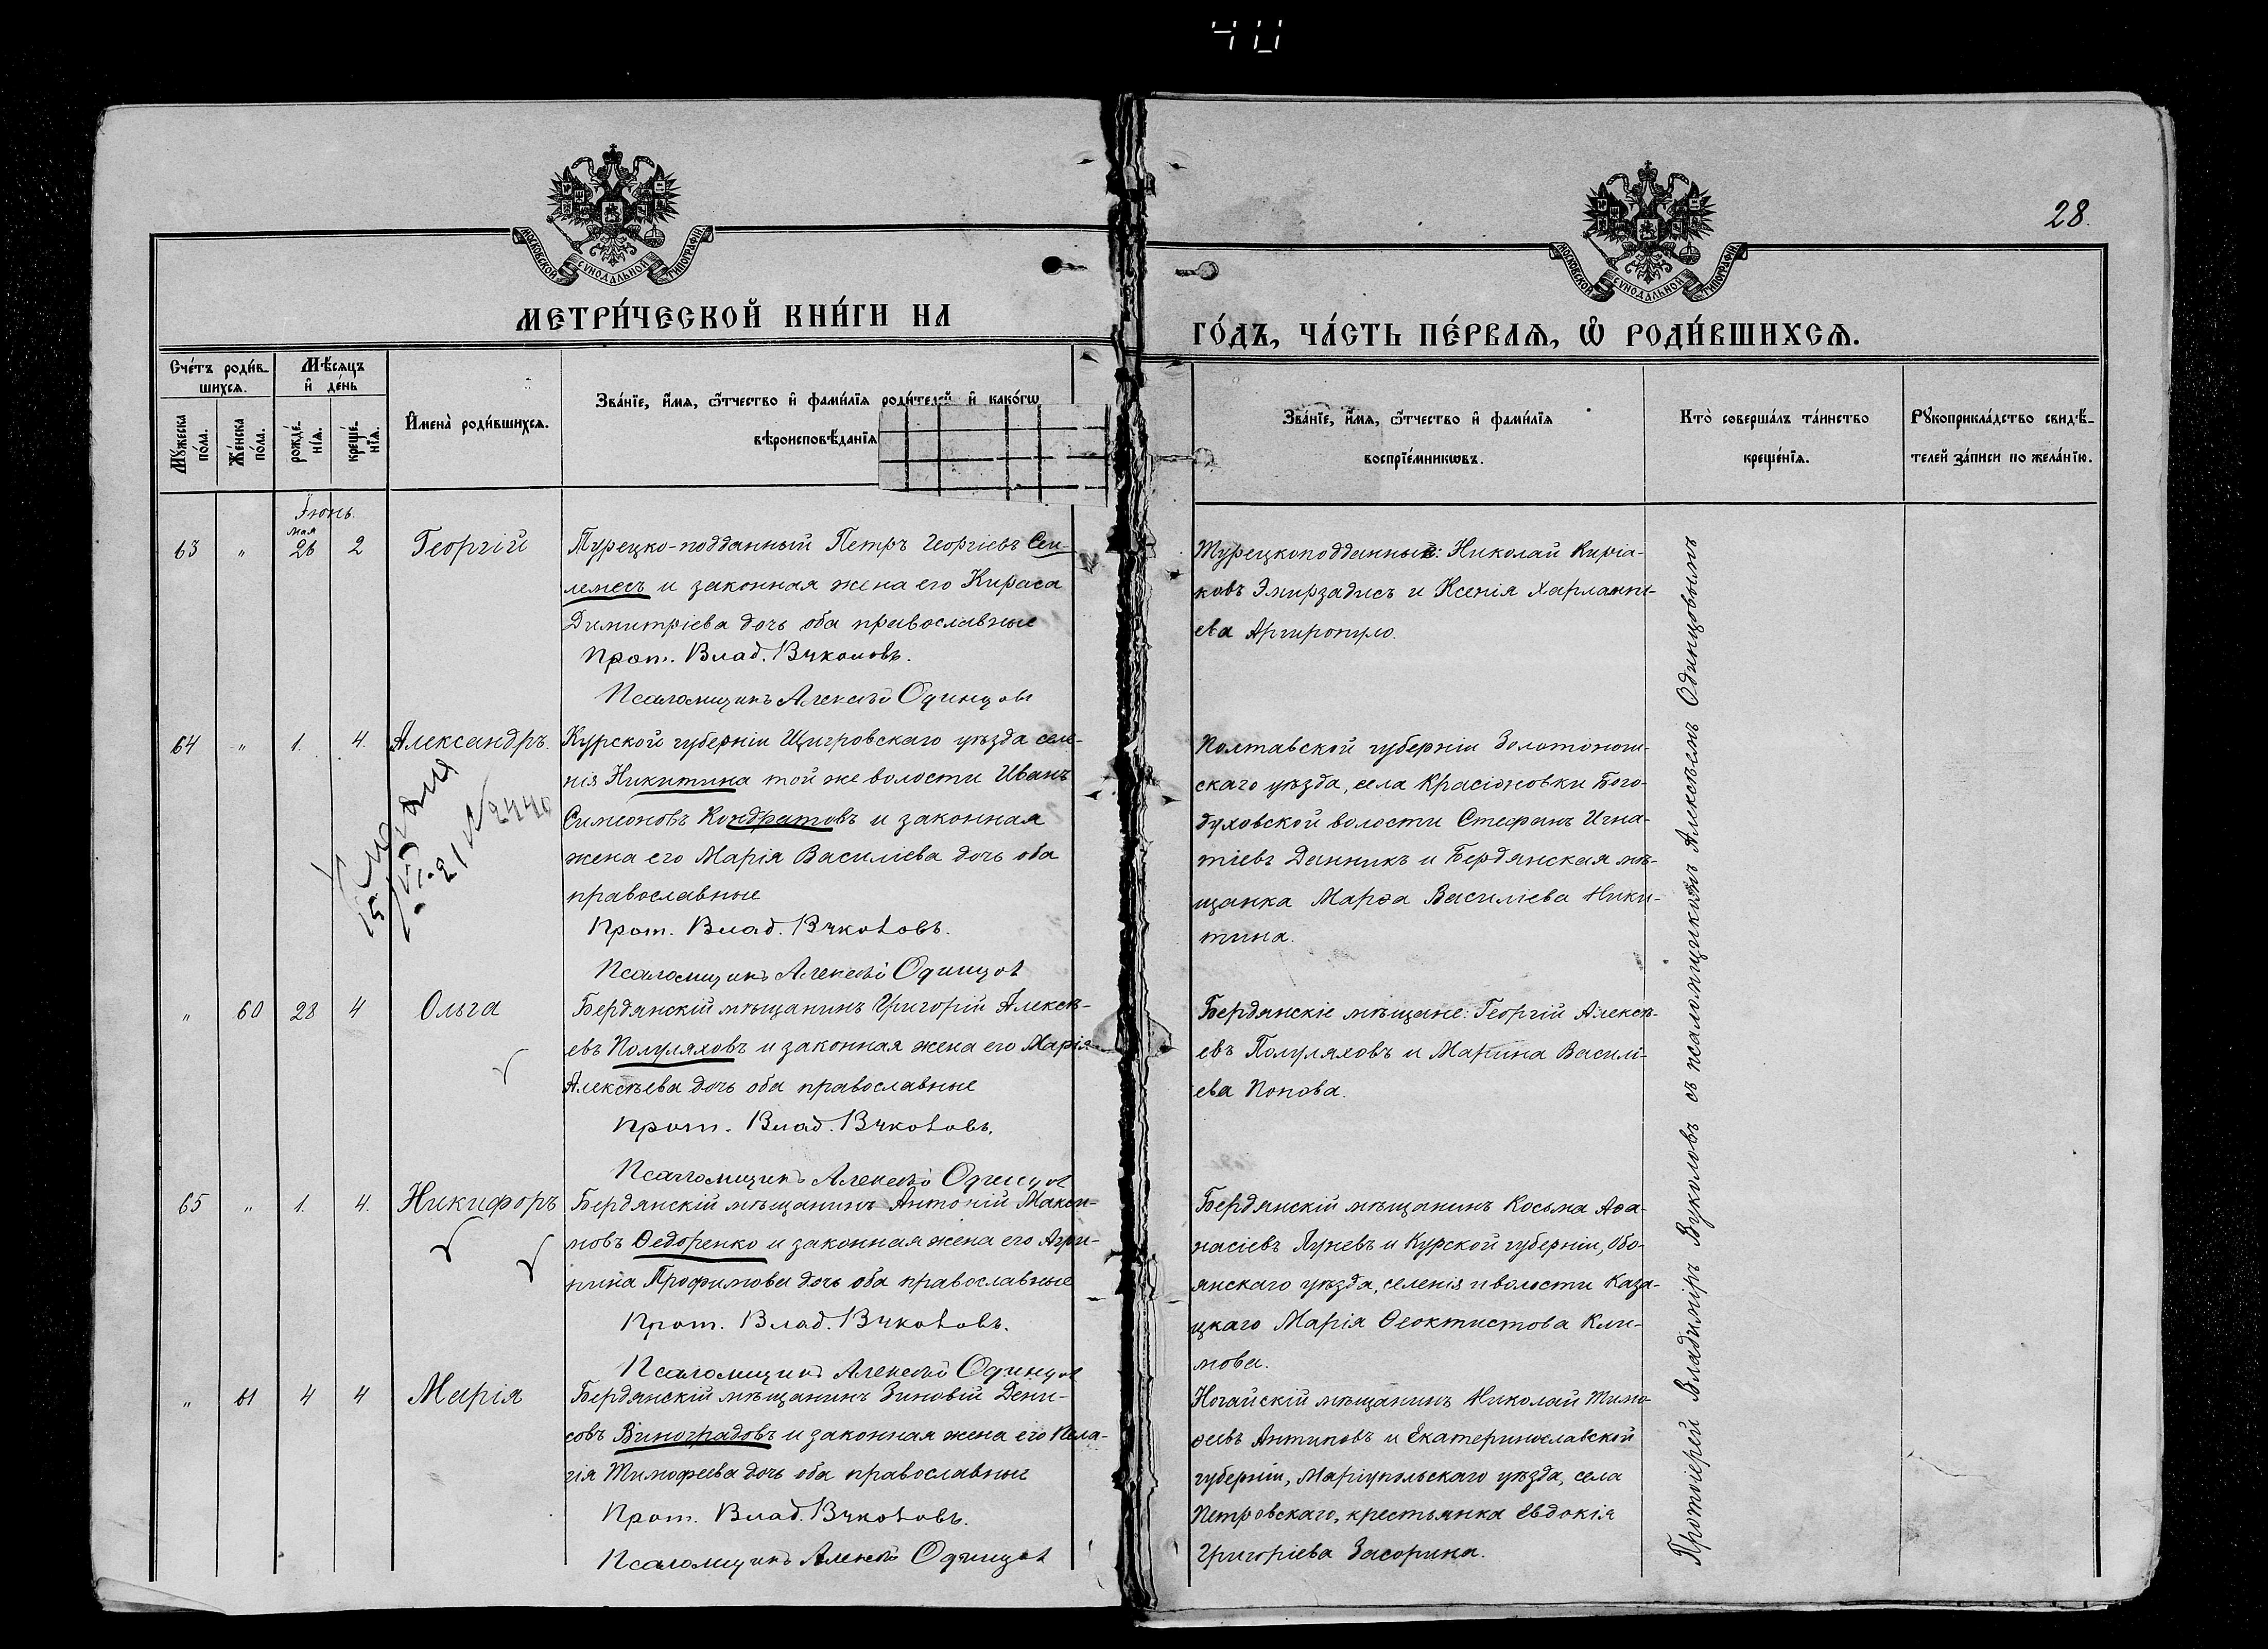 40
28.
МОСКОВСКОЙ СѴНОДАЛЬНОЙ ТИПОГРАФІИ
МОСКОВСКОЙ СѴНОДАЛЬНОЙ ТИПОГРАФІИ
МЕТРИ́ЧЕСКОЙ КНИ́ГИ НА
ГО́ДЪ, ЧА́СТЬ ПЕ́РВАѦ, Ѽ РОДИ́ВШИХСѦ.
Сче́тъ роди́в-
шихсѧ.
Мѣ́сѧцъ
и҆ де́нь
Мꙋ́жеска по́ла.
Же́нска по́ла.
рожде́нїѧ.
креще́нїѧ.
И҆мена̀ роди́вшихсѧ.
Зва́нїе, и҆́мѧ, ѻ҆́тчество и҆ фами́лїѧ роди́телей и҆ како́гѡ
вѣроисповѣ́данїѧ
Зва́нїе, и҆́мѧ, ѻ҆́тчество и҆ фами́лїѧ
воспрїе́мникѡвъ.
Кто̀ соверша́лъ та́инство
креще́нїѧ.
Рꙋкоприкла́дство свидѣ́-
телей за́писи по жела́нїю.
Іюнь.
мая
63 " 26 2 Георгій
Турецко-подданный Петръ Георгіевъ Сеи-
лемесъ и законная жена его Кираса
Димитріева дочь оба православные
Прот. Влад. Вуколовъ.
Псаломщикъ Алексѣй Одинцовъ
Турецкоподданные: Николай Киріа-
ковъ Эмирзадисъ и Ксенія Харлампі-
ева Аргиропуло.
64 " 1. 4. Александръ.
Курской губерніи Щигровскаго уѣзда селе-
нія Никитина той же волости Иванъ
Симеоновъ Кондратовъ и законная
жена его Марія Василіева дочь оба
православные
Прот. Влад. Вуколовъ.
Псаломщикъ Алексѣй Одинцов
Полтавской губерніи Золотонош-
скаго уѣзда, села Красіоновки Бого-
духовской волости Стефанъ Игна-
тіевъ Данникъ и Бердянская мѣ-
щанка Марѳа Василіева Ники-
тина.
" 60 28 4 Ольга
Бердянскій мѣщанинъ Григорій Алексѣ-
евъ Полуляховъ и законная жена его Марія
Алексѣева дочь оба православные
Прот. Влад. Вуколовъ.
Псаломщикъ Алексѣй Одинцов
Бердянскіе мѣщане: Георгій Алексѣ-
евъ Полуляховъ и Марина Василі-
ева Попова.
65 " 1. 4. Никифоръ
Бердянскій мѣщанинъ Антоній Макси-
мовъ Ѳедоренко и законная жена его Агри-
пина Трофимова дочь оба православные
Прот. Влад. Вуколовъ.
Псаломщикъ Алексѣй Одинцов
Бердянскій мѣщанинъ Косьма Аѳа-
насіевъ Лунев и Курской губерніи, Обо-
янскаго уѣзда, селенія и волости Каза-
цкаго Марія Ѳеоктистова Кли-
мова.
" 61 4 4 Марія
Бердянскій мѣщанинъ Зиновій Дени-
совъ Виноградовъ и законная жена его Пела-
гія Тимофеева дочь оба православные
Прот. Влад. Вуколовъ.
Псаломщикъ Алексѣй Одинцов
Ногайскій мѣщанинъ Николай Тимо-
ѳеевъ Антиповъ и Екатеринославской
губерніи, Маріупольскаго уѣзда, села
Петровскаго, крестьянка Евдокія
Григоріева Засорина.
Протоіерей Владиміръ Вуколовъ съ псаломщикомъ Алексѣемъ Одинцовымъ